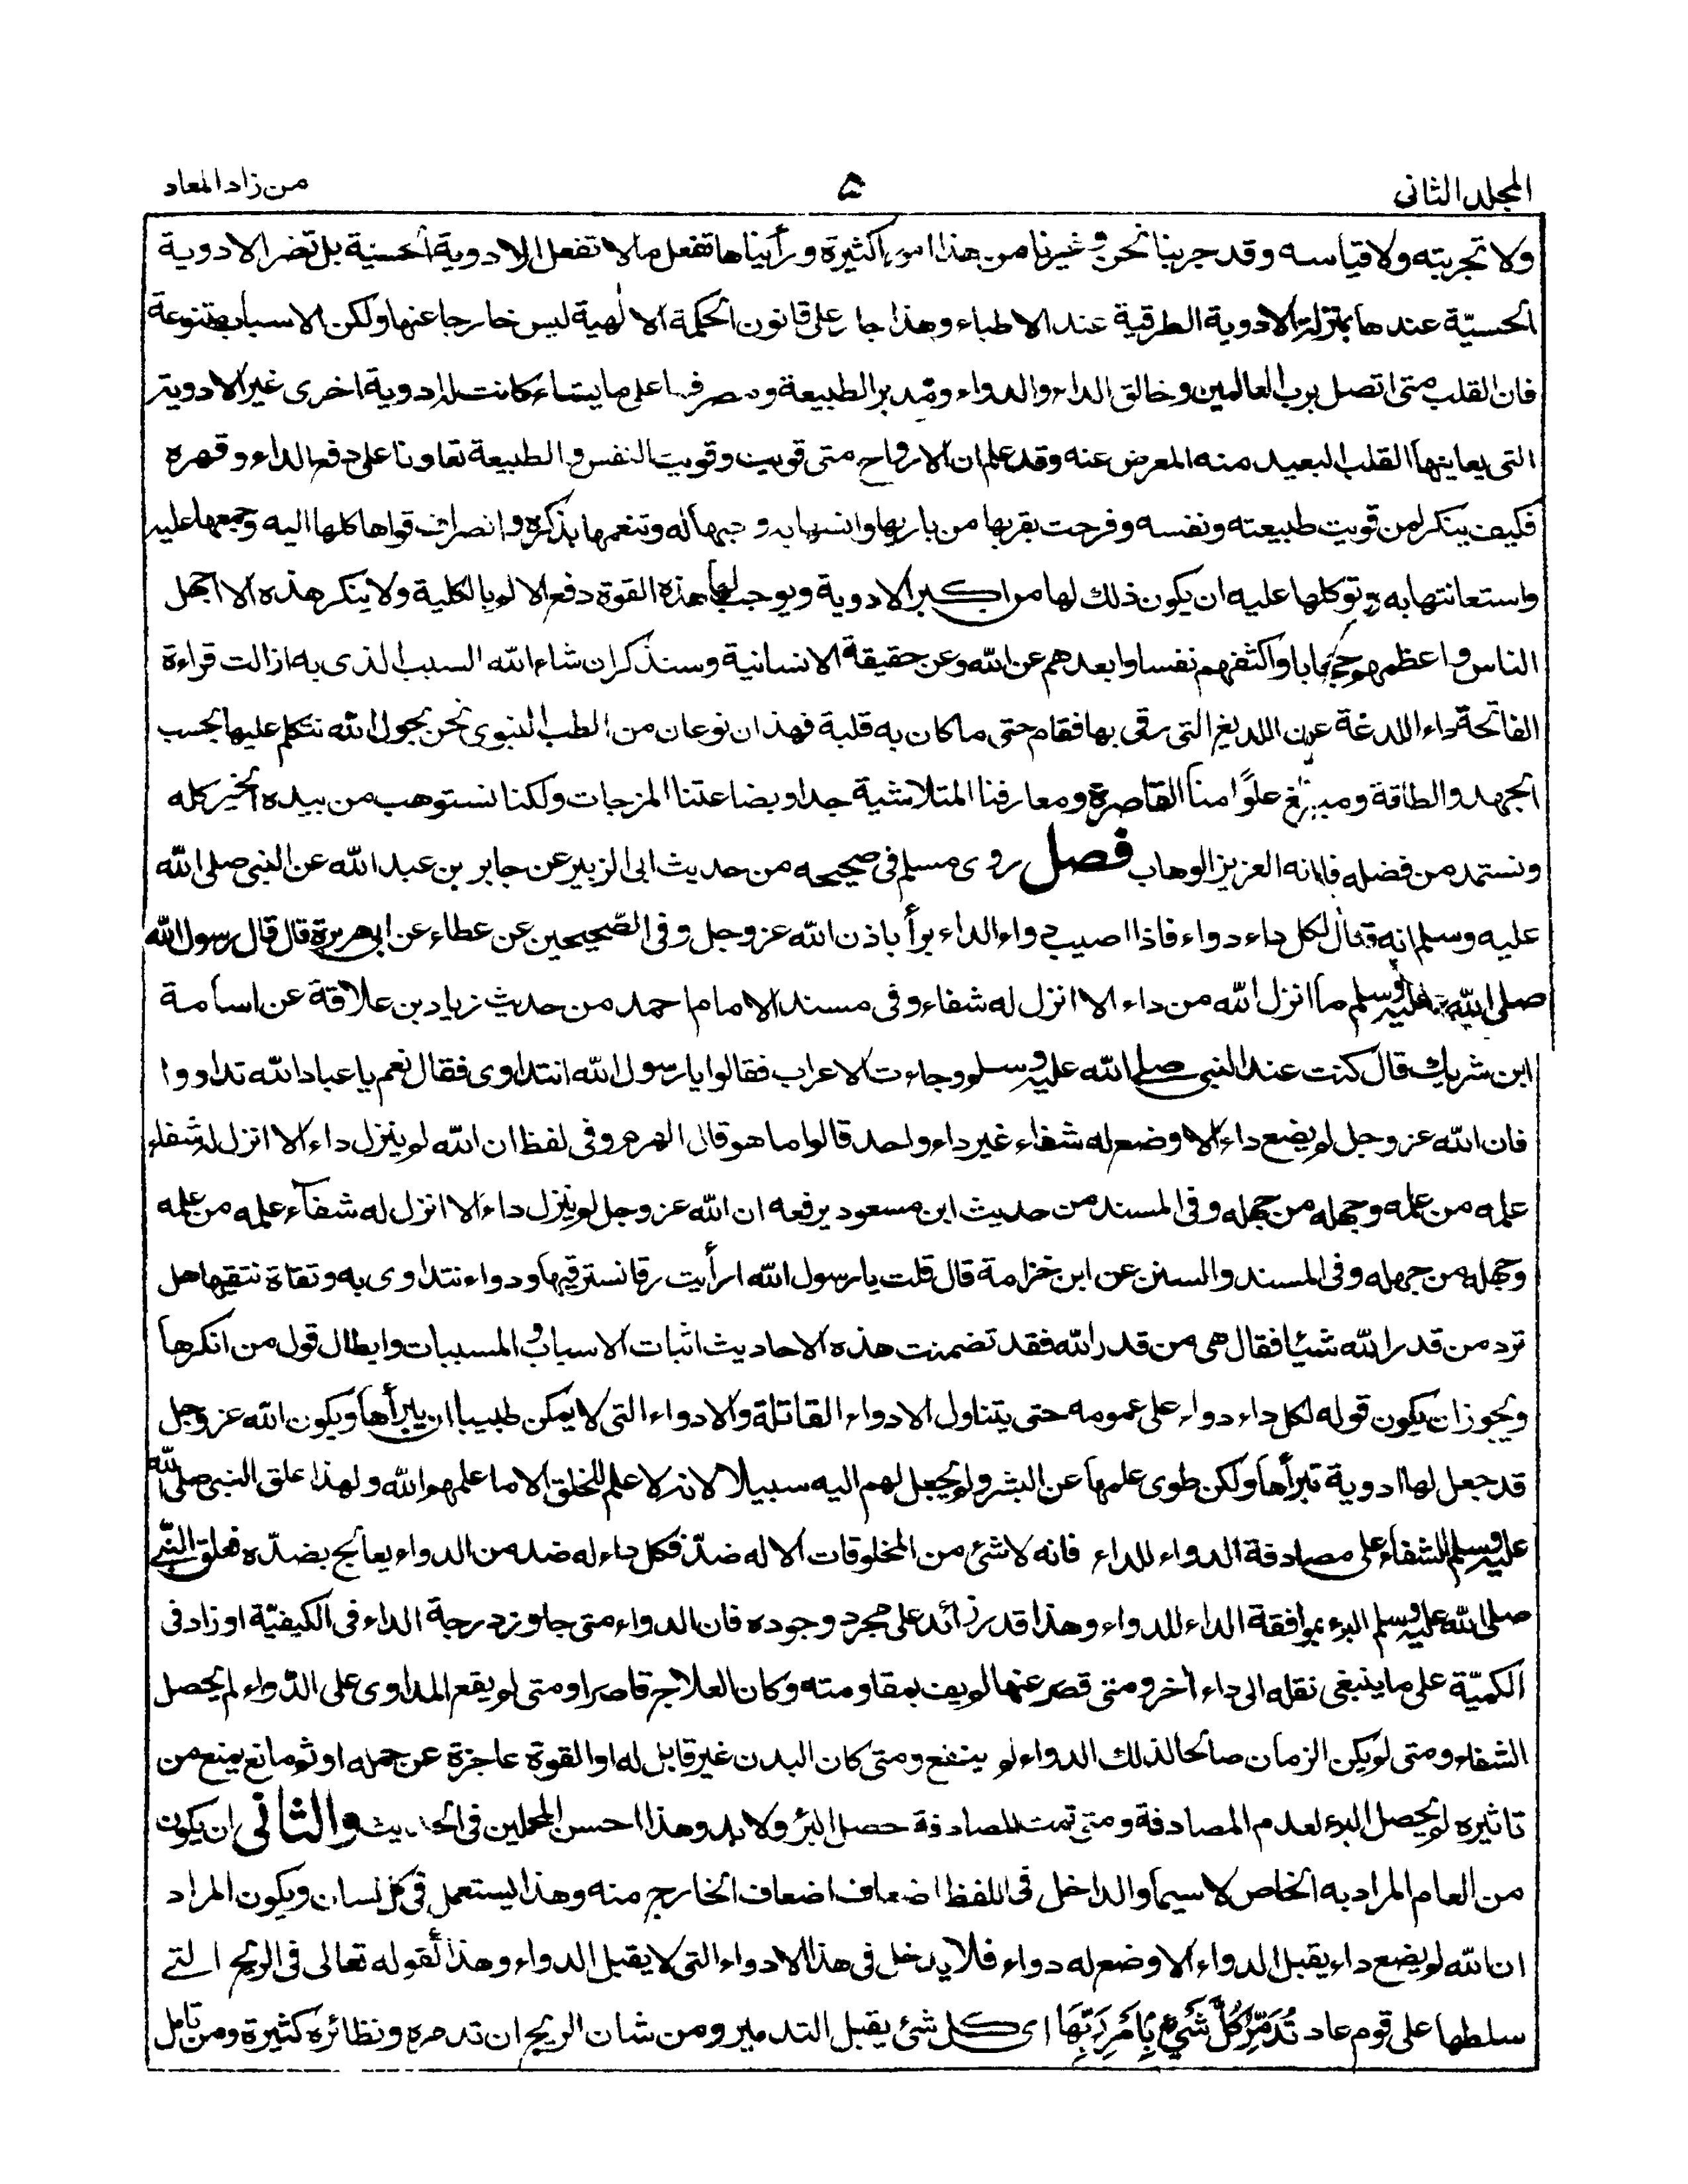 المجلد الثاني
۵
من زاد المعاد
ولا تجربته ولا قياسه وقد جربنا نحن وغيرنا من هذا امورا كثيرة ورأيناها تفعل ما لا تفعل الادوية الحسية بل تضر الادوية
الحسيّة عندها بمنزلة الادوية الطرقية عند الاطباء وهذا جار على قانون الحكمة الالهية ليس خارجا عنها ولكن الاسباب متنوعة
فان القلب متى اتصل برب العالمين وخالق الداء والدواء ومدبر الطبيعة ومصرفها على ما يشاء كانت له ادوية اخرى غير الادوية
التى يعاينها القلب البعيد منه المعرض عنه وقد علم ان الارواح متى قويت وقويت النفس والطبيعة تعاونا على دفع الداء وقهره
فكيف ينكر لمن قويت طبيعته ونفسه وفرحت بقربها من باريها وانسها به وحبها له وتنعمها بذكره وانصراف قواها كلها اليه وجمعها عليه
واستعانتها به وتوكلها عليه ان يكون ذلك لها من اكبر الادوية ويوجب لها هذه القوة دفع الالم بالكلية ولا ينكر هذه الا اجهل
الناس واعظمهم حجابا واكثفهم نفسا وابعدهم عن الله وعن حقيقة الانسانية وسنذكر ان شاء الله السبب الذى به ازالت قراءة
الفاتحة داء اللدغة عن اللديغ التى رقى بها فقام حتى ما كان به قلبة فهذان نوعان من الطب النبوى نحن بحول الله نتكلم عليها بحسب
الجهد والطاقة ومبلغ علوامنا القاصرة ومعارفنا المتلاشية جدا وبضاعتنا المزجات ولكنا نستوهب من بيده الخير كله
ونستمد من فضله فانه العزيز الوهاب فصل روى مسلم فى صحيحه من حديث ابى الزبير عن جابر بن عبد الله عن النبى صلى الله
عليه وسلم انه قال لكل داء دواء فاذا اصيب دواء الداء برأ باذن الله عز وجل وفى الصّحيحين عن عطاء عن ابى هريرة قال قال رسول الله
صلى الله عليه وسلم ما انزل الله من داء الا انزل له شفاء وفى مسند الامام احمد من حديث زياد بن علاقة عن اسامة
ابن شريك قال كنت عند النبى صلى الله عليه وسلم وجاءت الاعراب فقالوا يا رسول الله انتداوى فقال نعم يا عباد الله تداووا
فان الله عز وجل لم يضع داء الا وضع له شفاء غير داء واحد قالوا ما هو قال الهرم وفى لفظ ان الله لم ينزل داء الا انزل له شفاء
علمه من علمه وجهله من جهله وفى المسند من حديث ابن مسعود يرفعه ان الله عز وجل لم ينزل داء الا انزل له شفآء علمه من علمه
وجهله من جهله وفى المسند والسنن عن ابن خزامة قال قلت يا رسول الله ارأيت رقا نسترقيها ودواء نتداوى به وتقاة نتقيها هل
ترد من قدر الله شيئا فقال هى من قدر الله فقد تضمنت هذه الاحاديث اثبات الاسباب والمسببات وابطال قول من انكرها
ويجوز ان يكون قوله لكل داء دواء على عمومه حتى يتناول الادواء القاتلة والادواء التى لا يمكن طبيبا ان يبرأها ويكون الله عز وجل
قد جعل لها ادوية تبرأها ولكن طوى علمها عن البشر ولم يجعل لهم اليه سبيلا لانه لا علم للخلق الا ما علمهم الله ولهذا علق النبى صلى الله
عليه وسلم الشفاء على مصادفة الدواء للداء فانه لا شئ من المخلوقات الا له ضدّ فكل داء له ضد من الدواء يعالج بضدّه فعلق النّبى
صلى الله عليه وسلم البرء بموافقة الداء للدواء وهذا قدر زائد على مجرد وجوده فان الدواء متى جاوز درجة الداء فى الكيفيّة او زاد فى
الكميّة على ما ينبغى نقله الى داء آخر ومتى قصر عنها لم يف بمقاومته وكان العلاج قاصرا ومتى لم يقع المداوى على الدّواء لم يحصل
الشفاء ومتى لم يكن الزمان صالحا لذلك الدواء لم ينفع ومتى كان البدن غير قابل له او القوة عاجزة عن حمله او ثم مانع يمنع من
تاثيره لم يحصل البرء لعدم المصادفة ومتى تمت المصادفة حصل البرؤ ولا بد وهذا احسن المحملين فى الحديث والثانى ان يكون
من العام المراد به الخاص لا سيما والداخل فى اللفظ اضعاف اضعاف الخارج منه وهذا يستعمل فى كل لسان ويكون المراد
ان الله لم يضع داء يقبل الدواء الا وضع له دواء فلا يدخل فى هذا الادواء التى لا يقبل الدواء وهذا كقوله تعالى فى الريح التى
سلطها على قوم عاد تُدَمِّرُ كُلَّ شَيْءٍ بِأَمْرِ رَبِّهَا اى كل شئ يقبل التدمير ومن شان الريح ان تدمره ونظائره كثيرة ومن تامل